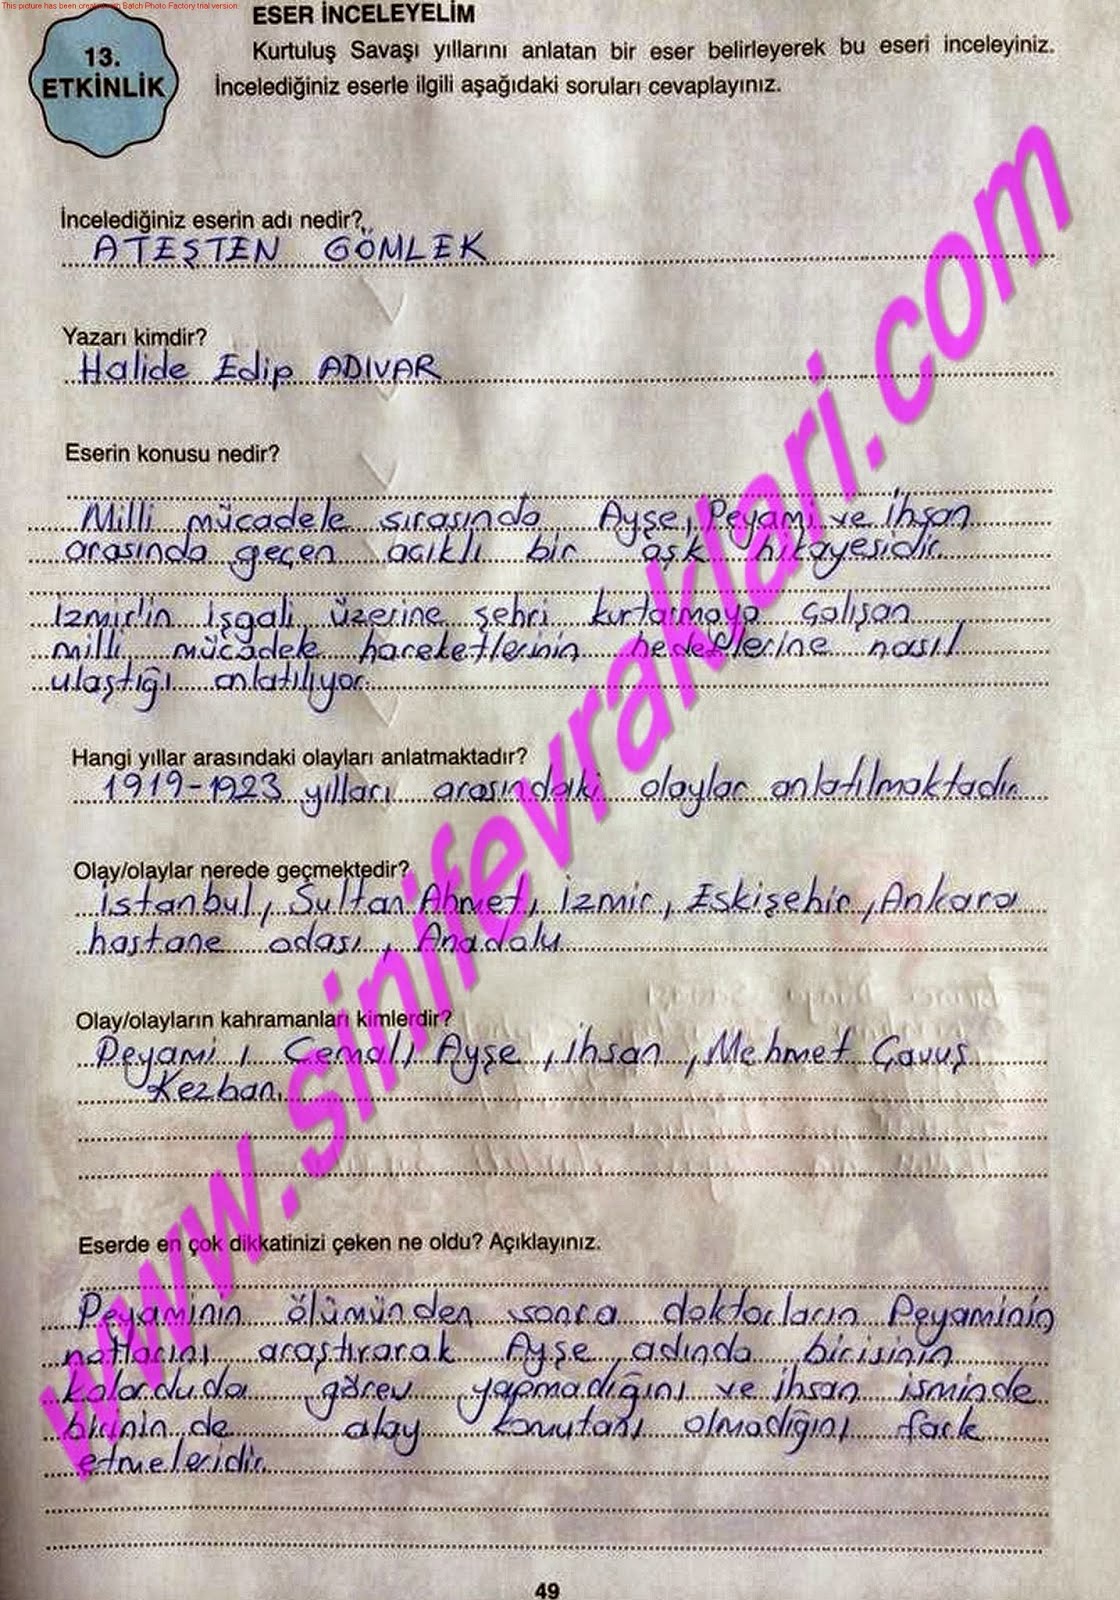 This picture has been created with Batch Photo Factory trial version.
13.
ETKİNLİK
ESER İNCELEYELİM
Kurtuluş Savaşı yıllarını anlatan bir eser belirleyerek bu eseri inceleyiniz.
İncelediğiniz eserle ilgili aşağıdaki soruları cevaplayınız.
İncelediğiniz eserin adı nedir?
ATEŞTEN GÖMLEK
Yazarı kimdir?
Halide Edip ADIVAR
Eserin konusu nedir?
Milli mücadele sırasında Ayşe, Peyami ve İhsan
arasında geçen acıklı bir aşk hikayesidir.
İzmir'in işgali üzerine şehri kurtarmaya çalışan
milli mücadele hareketlerinin hedeflerine nasıl
ulaştığı anlatılıyor.
Hangi yıllar arasındaki olayları anlatmaktadır?
1919-1923 yılları arasındaki olaylar anlatılmaktadır.
Olay/olaylar nerede geçmektedir?
İstanbul, Sultan Ahmet, İzmir, Eskişehir, Ankara
hastane odası, Anadolu
Olay/olayların kahramanları kimlerdir?
Peyami, Cemal, Ayşe, İhsan, Mehmet Çavuş
Kezban.
Eserde en çok dikkatinizi çeken ne oldu? Açıklayınız.
Peyaminin ölümünden sonra doktorların Peyaminin
notlarını araştırarak Ayşe adında birisinin
kolorduda görev yapmadığını ve İhsan isminde
birinin de alay komutanı olmadığını fark
etmeleridir.
www.sinifevraklari.com
49